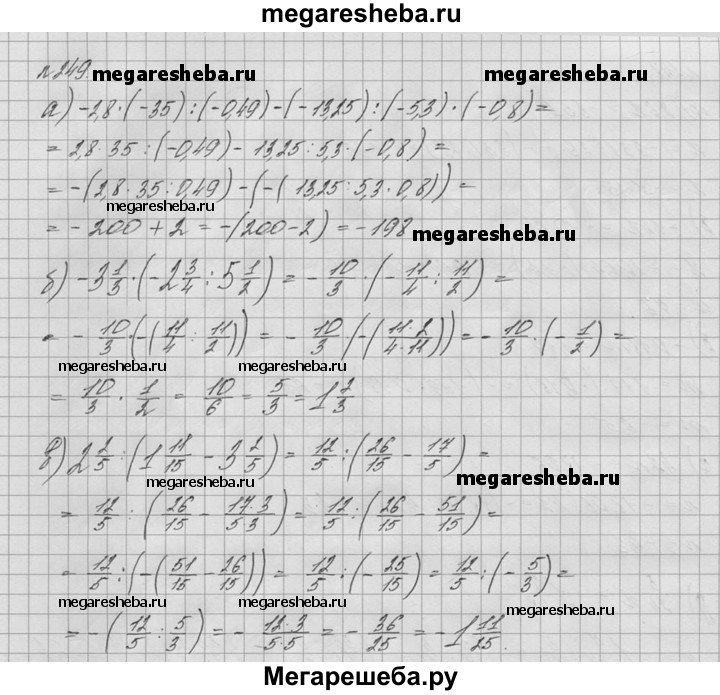 megaresheba.ru
№249.
megaresheba.ru megaresheba.ru
а) -2,8·(-35):(-0,49)-(-13,25):(-5,3)·(-0,8)=
= 2,8·35:(-0,49)-13,25:5,3·(-0,8)=
= -(2,8·35:0,49)-(-(13,25:5,3·0,8))=
megaresheba.ru
= -200+2 = -(200-2) = -198
megaresheba.ru
б) -3 1/3·(-2 3/4:5 1/2) = -10/3·(-11/4:11/2) =
= -10/3·(-(11/4:11/2)) = -10/3·(-(11·2/4·11)) = -10/3·(-1/2) =
megaresheba.ru megaresheba.ru
= 10/3·1/2 = 10/6 = 5/3 = 1 2/3
в) 2 2/5:(1 11/15 - 3 2/5) = 12/5:(26/15 - 17/5) =
megaresheba.ru megaresheba.ru
= 12/5:(26/15 - 17·3/5·3) = 12/5:(26/15 - 51/15) =
= 12/5:(-(51/15 - 26/15)) = 12/5:(-25/15) = 12/5:(-5/3) =
megaresheba.ru megaresheba.ru megaresheba.ru
= -(12/5:5/3) = -12·3/5·5 = -36/25 = -1 11/25.
Мегарешеба.ру